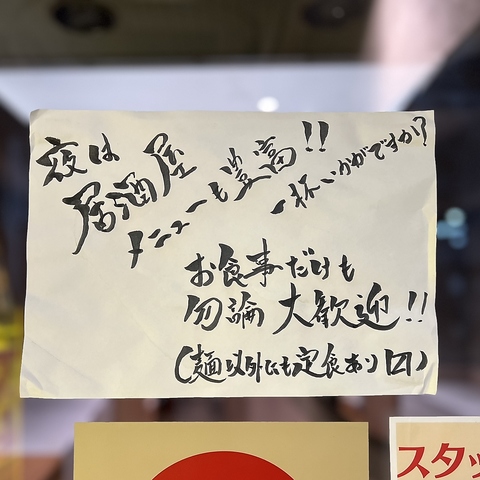 夜は
居酒屋
メニューも豊富!!
一杯いかがですか?
お食事だけも
勿論 大歓迎!!
(麺以外にも定食あり〼)
スタッ